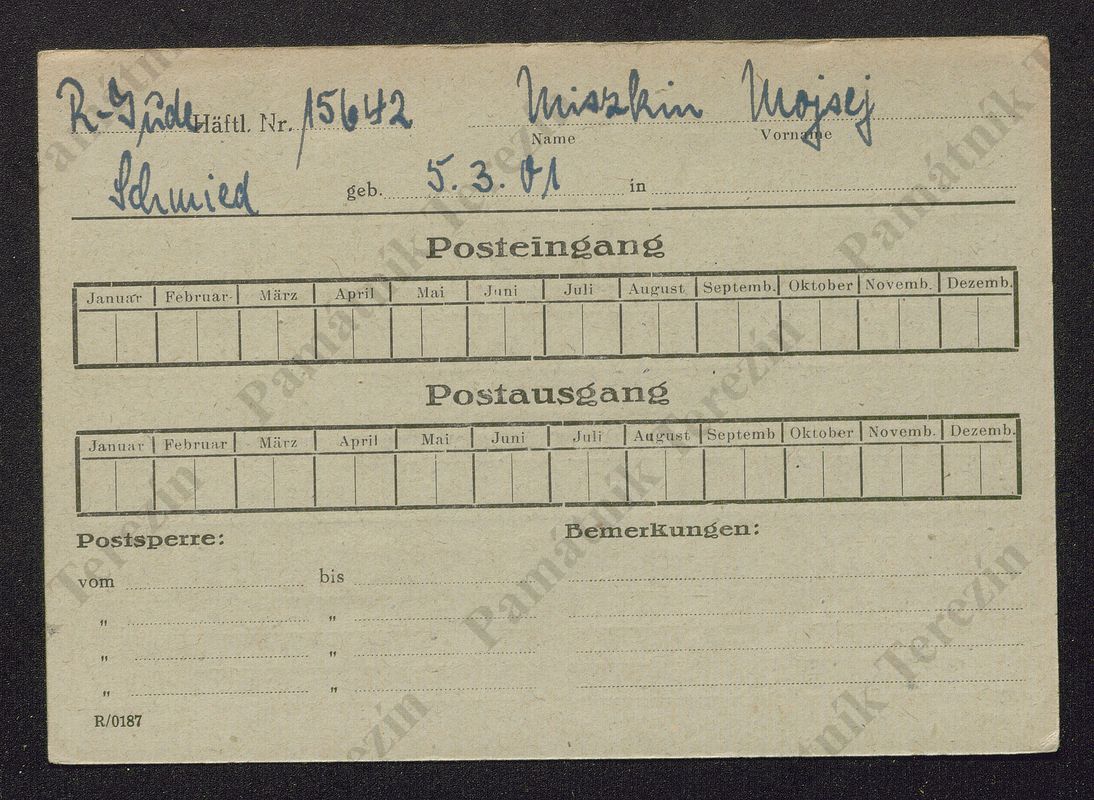 R-Jude Häftl. Nr. 15642 Miszkin Mojsej
Name Vorname
Schmied geb. 5. 3. 01 in
Posteingang
Januar Februar März April Mai Juni Juli August Septemb. Oktober Novemb. Dezemb.
Postausgang
Januar Februar März April Mai Juni Juli August Septemb Oktober Novemb. Dezemb.
Postsperre: Bemerkungen:
vom bis
" "
" "
" "
R/0187
Památník Terezín